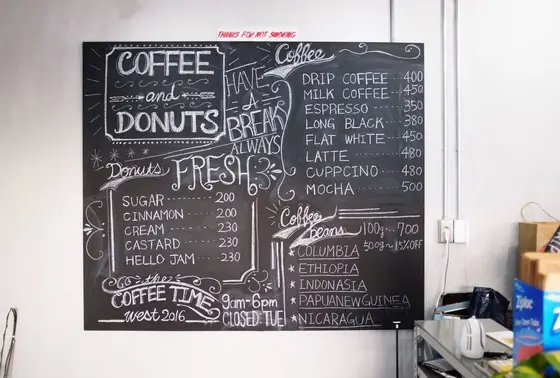 THANKS FOR NOT SMOKING
COFFEE
and
DONUTS
HAVE
A
BREAK
ALWAYS
FRESH
Donuts
SUGAR 200
CINNAMON 200
CREAM 230
CASTARD 230
HELLO JAM 230
the
COFFEE TIME
west 2016
9am-6pm
CLOSED:TUE
Coffee
DRIP COFFEE 400
MILK COFFEE 450
ESPRESSO 350
LONG BLACK 380
FLAT WHITE 450
LATTE 480
CUPPCINO 480
MOCHA 500
Coffee
beans
100g 700
500g~ 15%OFF
★COLUMBIA
★ETHIOPIA
★INDONASIA
★PAPUANEWGUINEA
★NICARAGUA
Ziploc